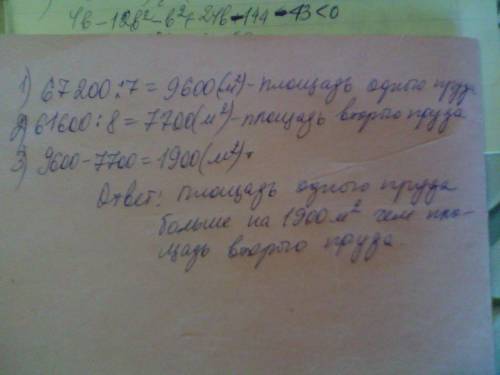 4в-12в²-в²+24в-144-43<0
1) 67200:7=9600(м²)-площадь одного пруда
2) 61600:8=7700(м²)-площадь второго пруда
3) 9600-7700=1900(м²).
Ответ: площадь одного пруда
больше на 1900м² чем пло-
щадь второго пруда.